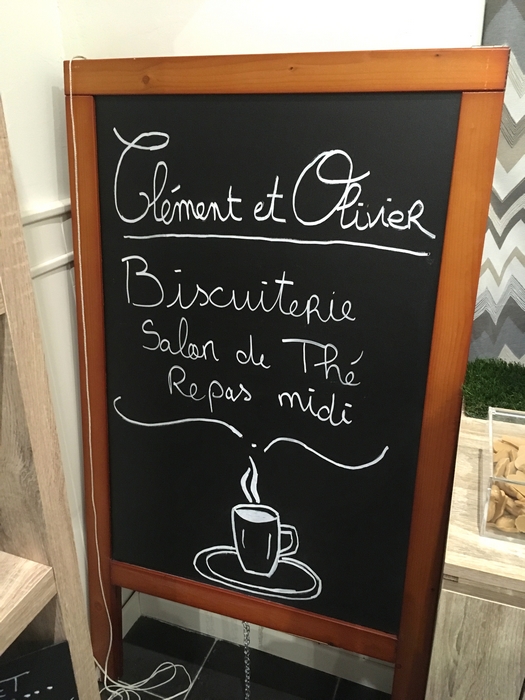 Clément et Olivier
Biscuiterie
Salon de Thé
Repas midi